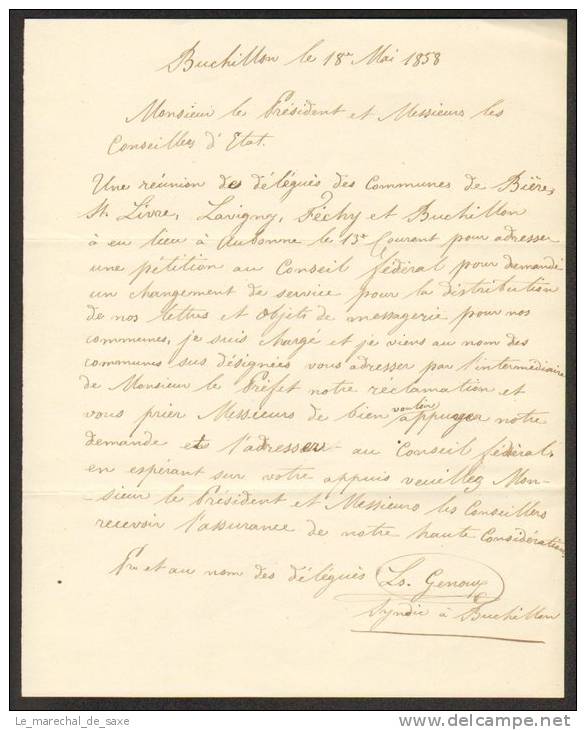 Buchillon le 18e Mai 1858
Monsieur le Président et Messieurs les
Conseillers d'Etat.
Une réunion de délégués des Communes de Bière,
St. Livre, Lavigny, Féchy et Buchillon
à eu lieu à Aubonne le 13e Courant pour adresser
une pétition au Conseil fédéral pour demandé
un changement de service pour la distribution
de nos lettres et objets de messagerie pour nos
communes, je suis chargé et je viens au nom des
communes sus désignées vous adresser par l'intermédiaire
de Monsieur le Préfet notre réclamation et
vous prier Messieurs de bien vouloir appuyer notre
demande et l'adresser au Conseil fédéral,
en espérant sur votre appuis veuillez Mon-
-sieur le Président et Messieurs les Conseillers
recevoir l'assurance de notre haute Considération,
Pr et au nom des délégués Ls. Genoux
Syndic à Buchillon
Le_marechal_de_saxe
delcampe.net